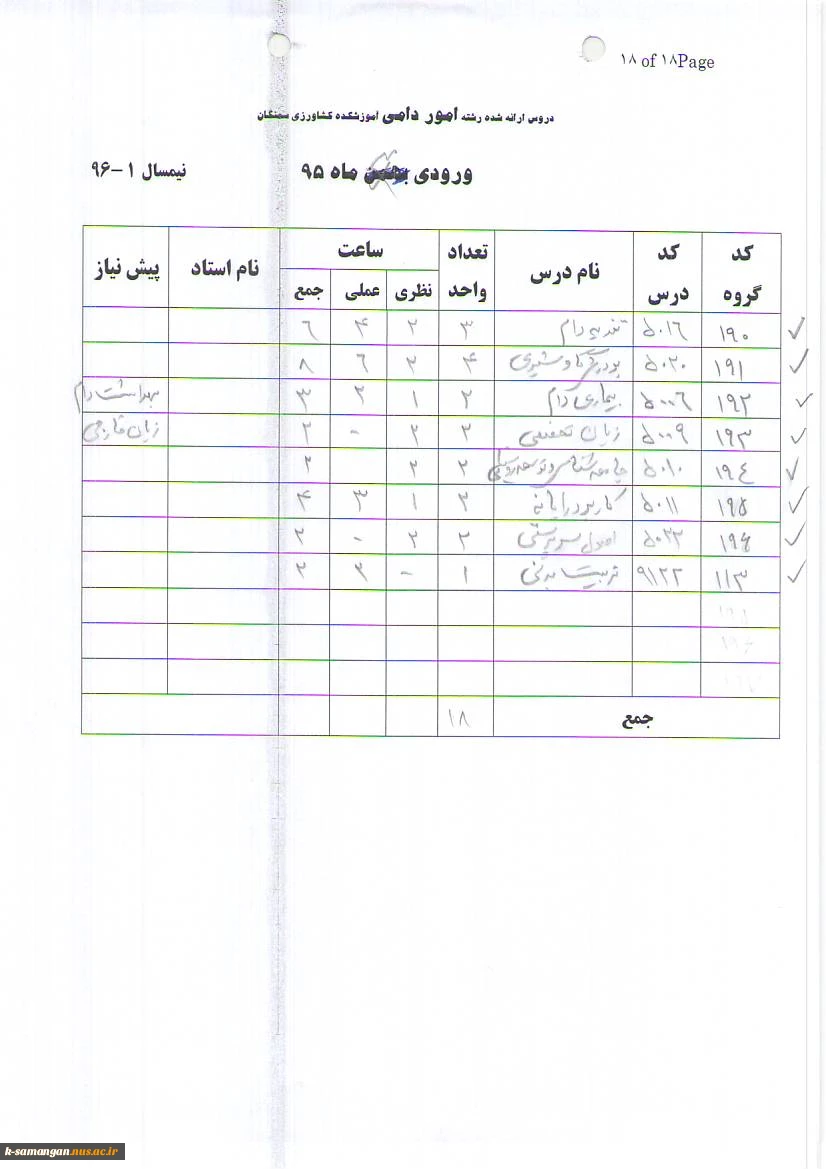 ۱۸ of ۱۸Page
دروس ارائه شده رشته امور دامی آموزشکده کشاورزی سمنگان
ورودی بهمن ماه ۹۵ نیمسال ۱-۹۶
کد گروه کد درس نام درس تعداد واحد ساعت نام استاد پیش نیاز
نظری عملی جمع
۱۹۰ ۵۰۱۶ تغذیه دام ۳ ۲ ۴ ۶
۱۹۱ ۵۰۲۰ پرورش گاو شیری ۴ ۲ ۶ ۸
۱۹۲ ۵۰۰۶ بیماری دام ۲ ۱ ۲ ۳ بهداشت دام
۱۹۳ ۵۰۰۹ زبان تخصصی ۲ ۲ - ۲ زبان خارجی
۱۹۴ ۵۰۱۰ جامعه شناسی و توسعه روستایی ۲ ۲ ۲
۱۹۵ ۵۰۱۱ کاربرد رایانه ۲ ۱ ۳ ۴
۱۹۶ ۵۰۲۲ اصول سرپرستی ۲ ۲ - ۲
۱۱۳ ۹۱۲۲ تربیت بدنی ۱ - ۲ ۲
جمع ۱۸
k-samangan.nus.ac.ir